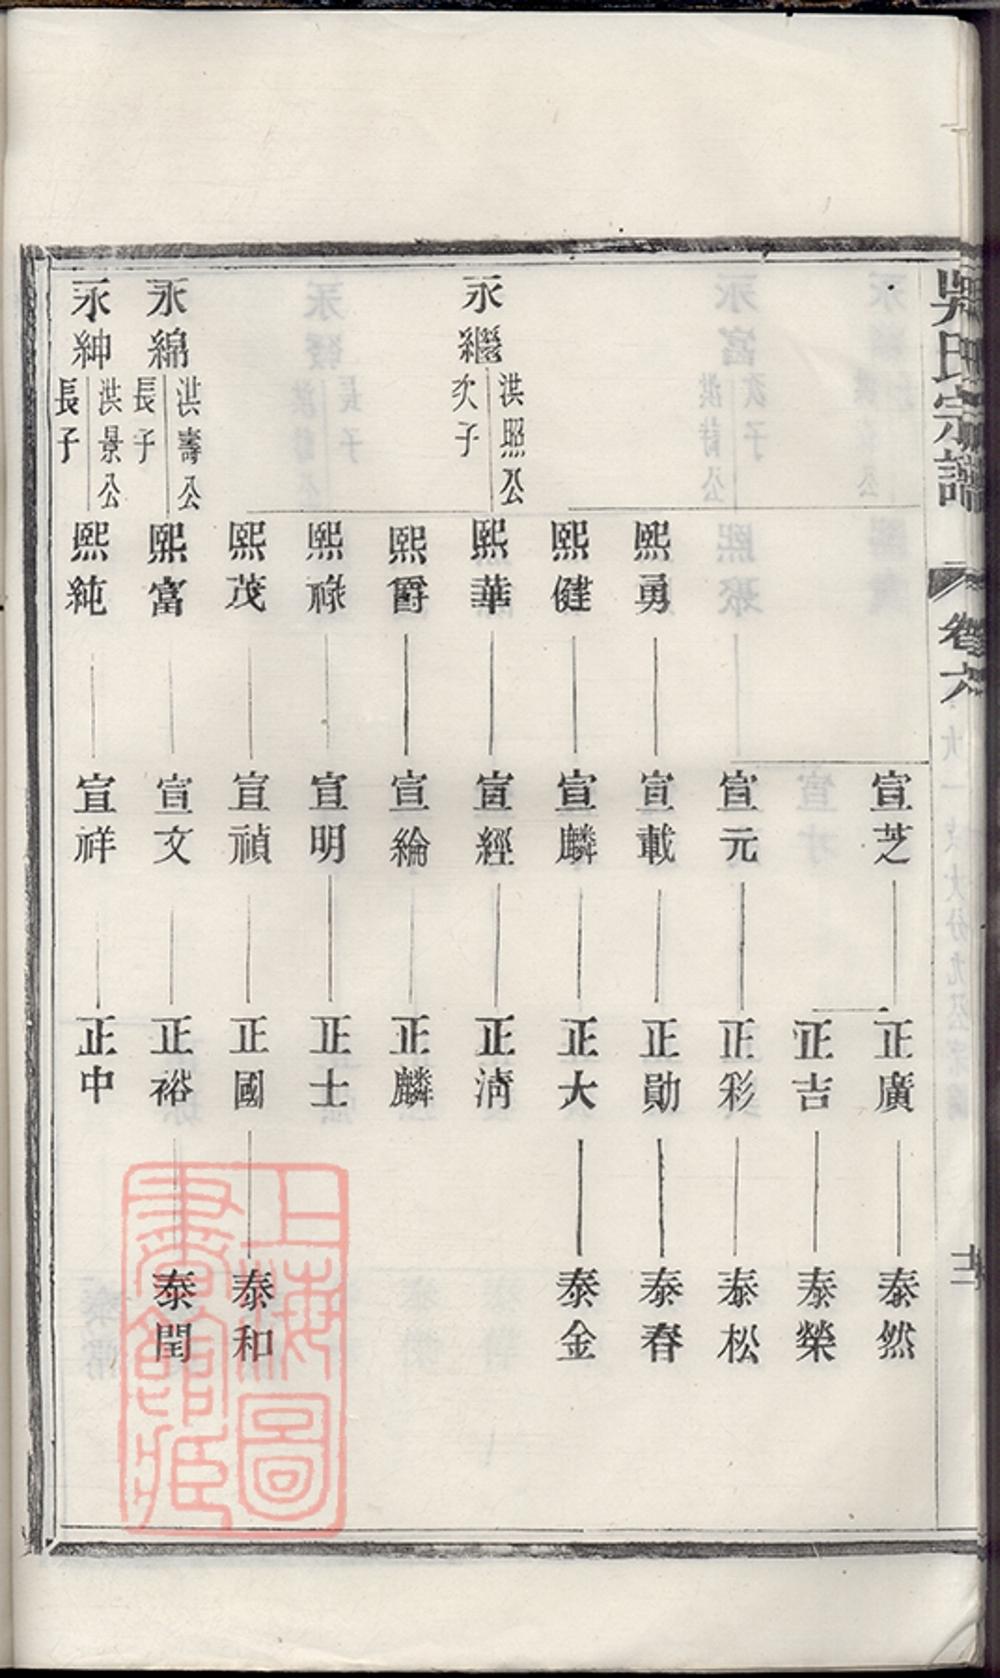 吳氏宗譜
卷六
十二
宣芝
正廣
泰然
正吉
泰榮
宣元
正彩
泰松
熙勇
宣載
正勛
泰春
熙健
宣麟
正大
泰金
永繼
洪照公
次子
熙華
宣經
正清
熙爵
宣綸
正麟
熙祿
宣明
正士
熙茂
宣禎
正國
泰和
永綿
洪壽公
長子
熙富
宣文
正裕
泰閏
永紳
洪景公
長子
熙純
宣祥
正中
上海圖
書館藏